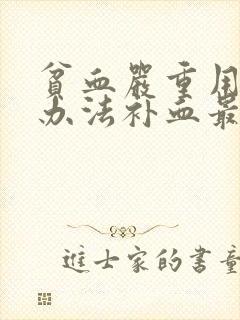 貧血嚴重用
办法补血最
進士家的書童